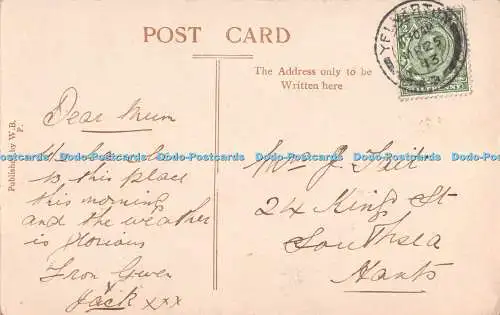 POST CARD
The Address only to be
Written here
YELVERTON
25
13
Published by W.B.
P.
Dear Mum
We
to this place
this morning
and the weather
is glorious
From Gwen
& Jack xxx
J Tait
24 Kings St
Southsea
Hants
Dodo-Postcards Dodo-Postcards Dodo-Postcards Dodo-Postcards Dodo-Postcards Dodo-Postcards